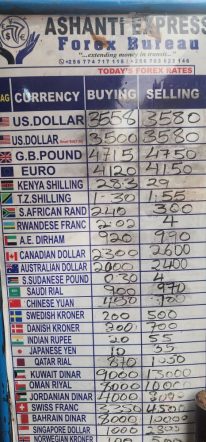 ASHANTI EXPRESS
Forex Bureau
"...extending money in transit..."
+256 774 717 116 / +256 703 622 146
TODAY'S FOREX RATES
FLAG CURRENCY BUYING SELLING
US.DOLLAR 3558 3580
US.DOLLAR 3500 3580
G.B.POUND 4715
EURO 4120 4150
KENYA SHILLING 28.3 29
T.Z.SHILLING 1-30 1-55
S.AFRICAN RAND 240 300
RWANDESE FRANC 2.02 4
A.E. DIRHAM 920 990
CANADIAN DOLLAR 2300 2600
AUSTRALIAN DOLLAR 2000 2400
S.SUDANESE POUND 0.30 4
SAUDI RIAL 970
CHINESE YUAN 700
SWEDISH KRONER 200 500
DANISH KRONER 200 700
INDIAN RUPEE 20 55
JAPANESE YEN 10 35
QATAR RIAL 870 1050
KUWAIT DINAR 9000 13000
OMAN RIYAL 8000
JORDANIAN DINAR 4000
SWISS FRANC 4500
BAHRAIN DINAR 8000
SINGAPORE DOLLAR
NORWEGIAN KRONER